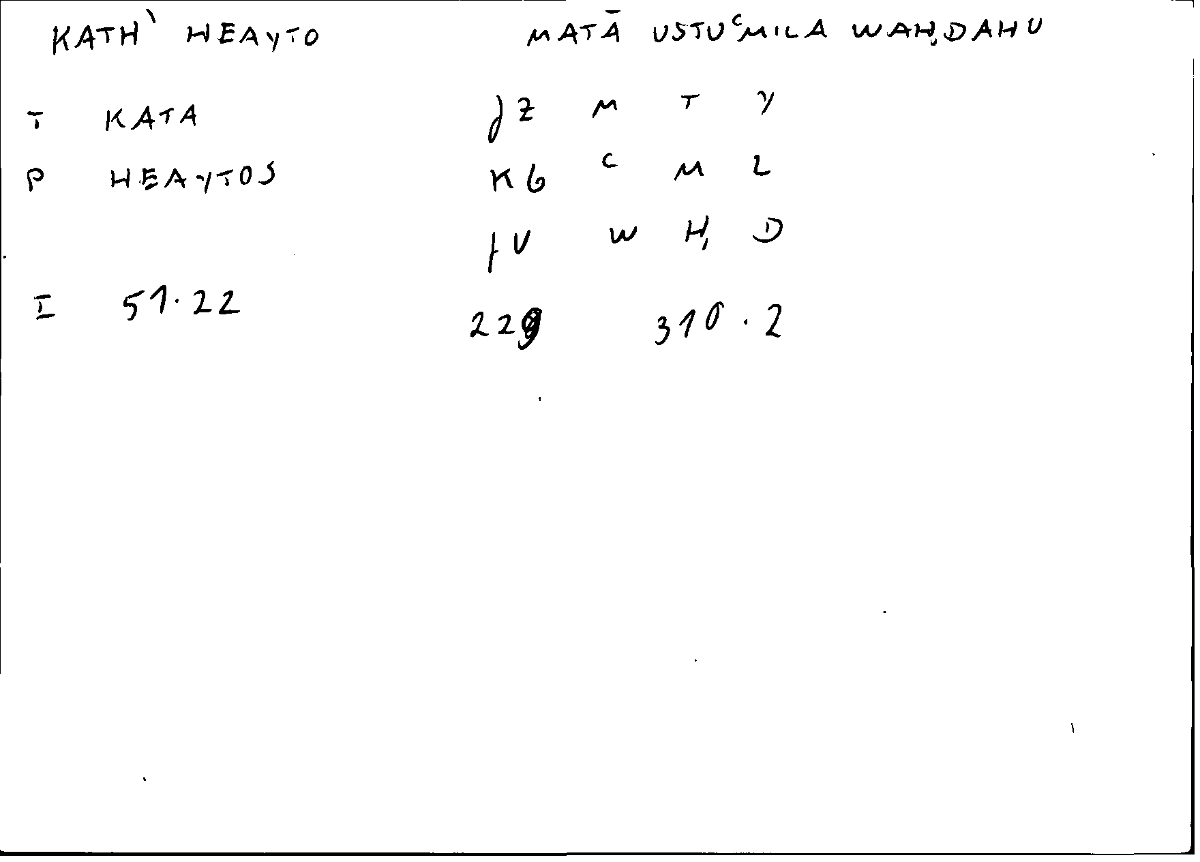 KATH` HEAYTO MATĀ USTUᶜMILA WAḤDAHU
T KATA ȷZ M T Y
P HEAYTOS K6 ᶜ M L
ȷU W Ḥ D
I 51.22 229 310.2